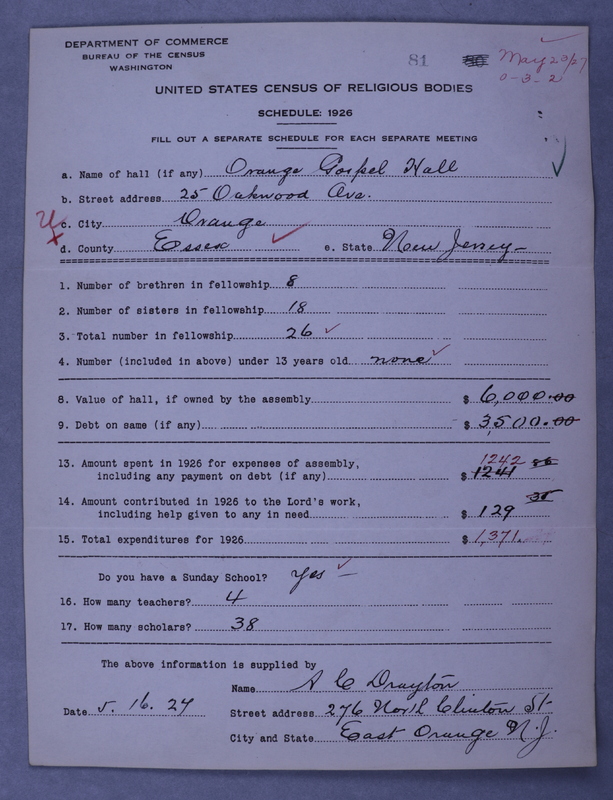 DEPARTMENT OF COMMERCE
BUREAU OF THE CENSUS
WASHINGTON
81 May 23/27
0-3-2
UNITED STATES CENSUS OF RELIGIOUS BODIES
SCHEDULE: 1926
FILL OUT A SEPARATE SCHEDULE FOR EACH SEPARATE MEETING
a. Name of hall (if any) Orange Gospel Hall
b. Street address 25 Oakwood Ave.
c. City Orange
d. County Essex e. State New Jersey
1. Number of brethren in fellowship 8
2. Number of sisters in fellowship 18
3. Total number in fellowship 26
4. Number (included in above) under 13 years old none
8. Value of hall, if owned by the assembly $ 6,000.00
9. Debt on same (if any) $ 3,500.00
13. Amount spent in 1926 for expenses of assembly, 1242
including any payment on debt (if any) $ 1241
14. Amount contributed in 1926 to the Lord's work,
including help given to any in need $ 129
15. Total expenditures for 1926 $ 1,371.
Do you have a Sunday School? Yes
16. How many teachers? 4
17. How many scholars? 38
The above information is supplied by
Name A C Drayton
Date 5. 16. 27 Street address 276 North Clinton St
City and State East Orange N.J.